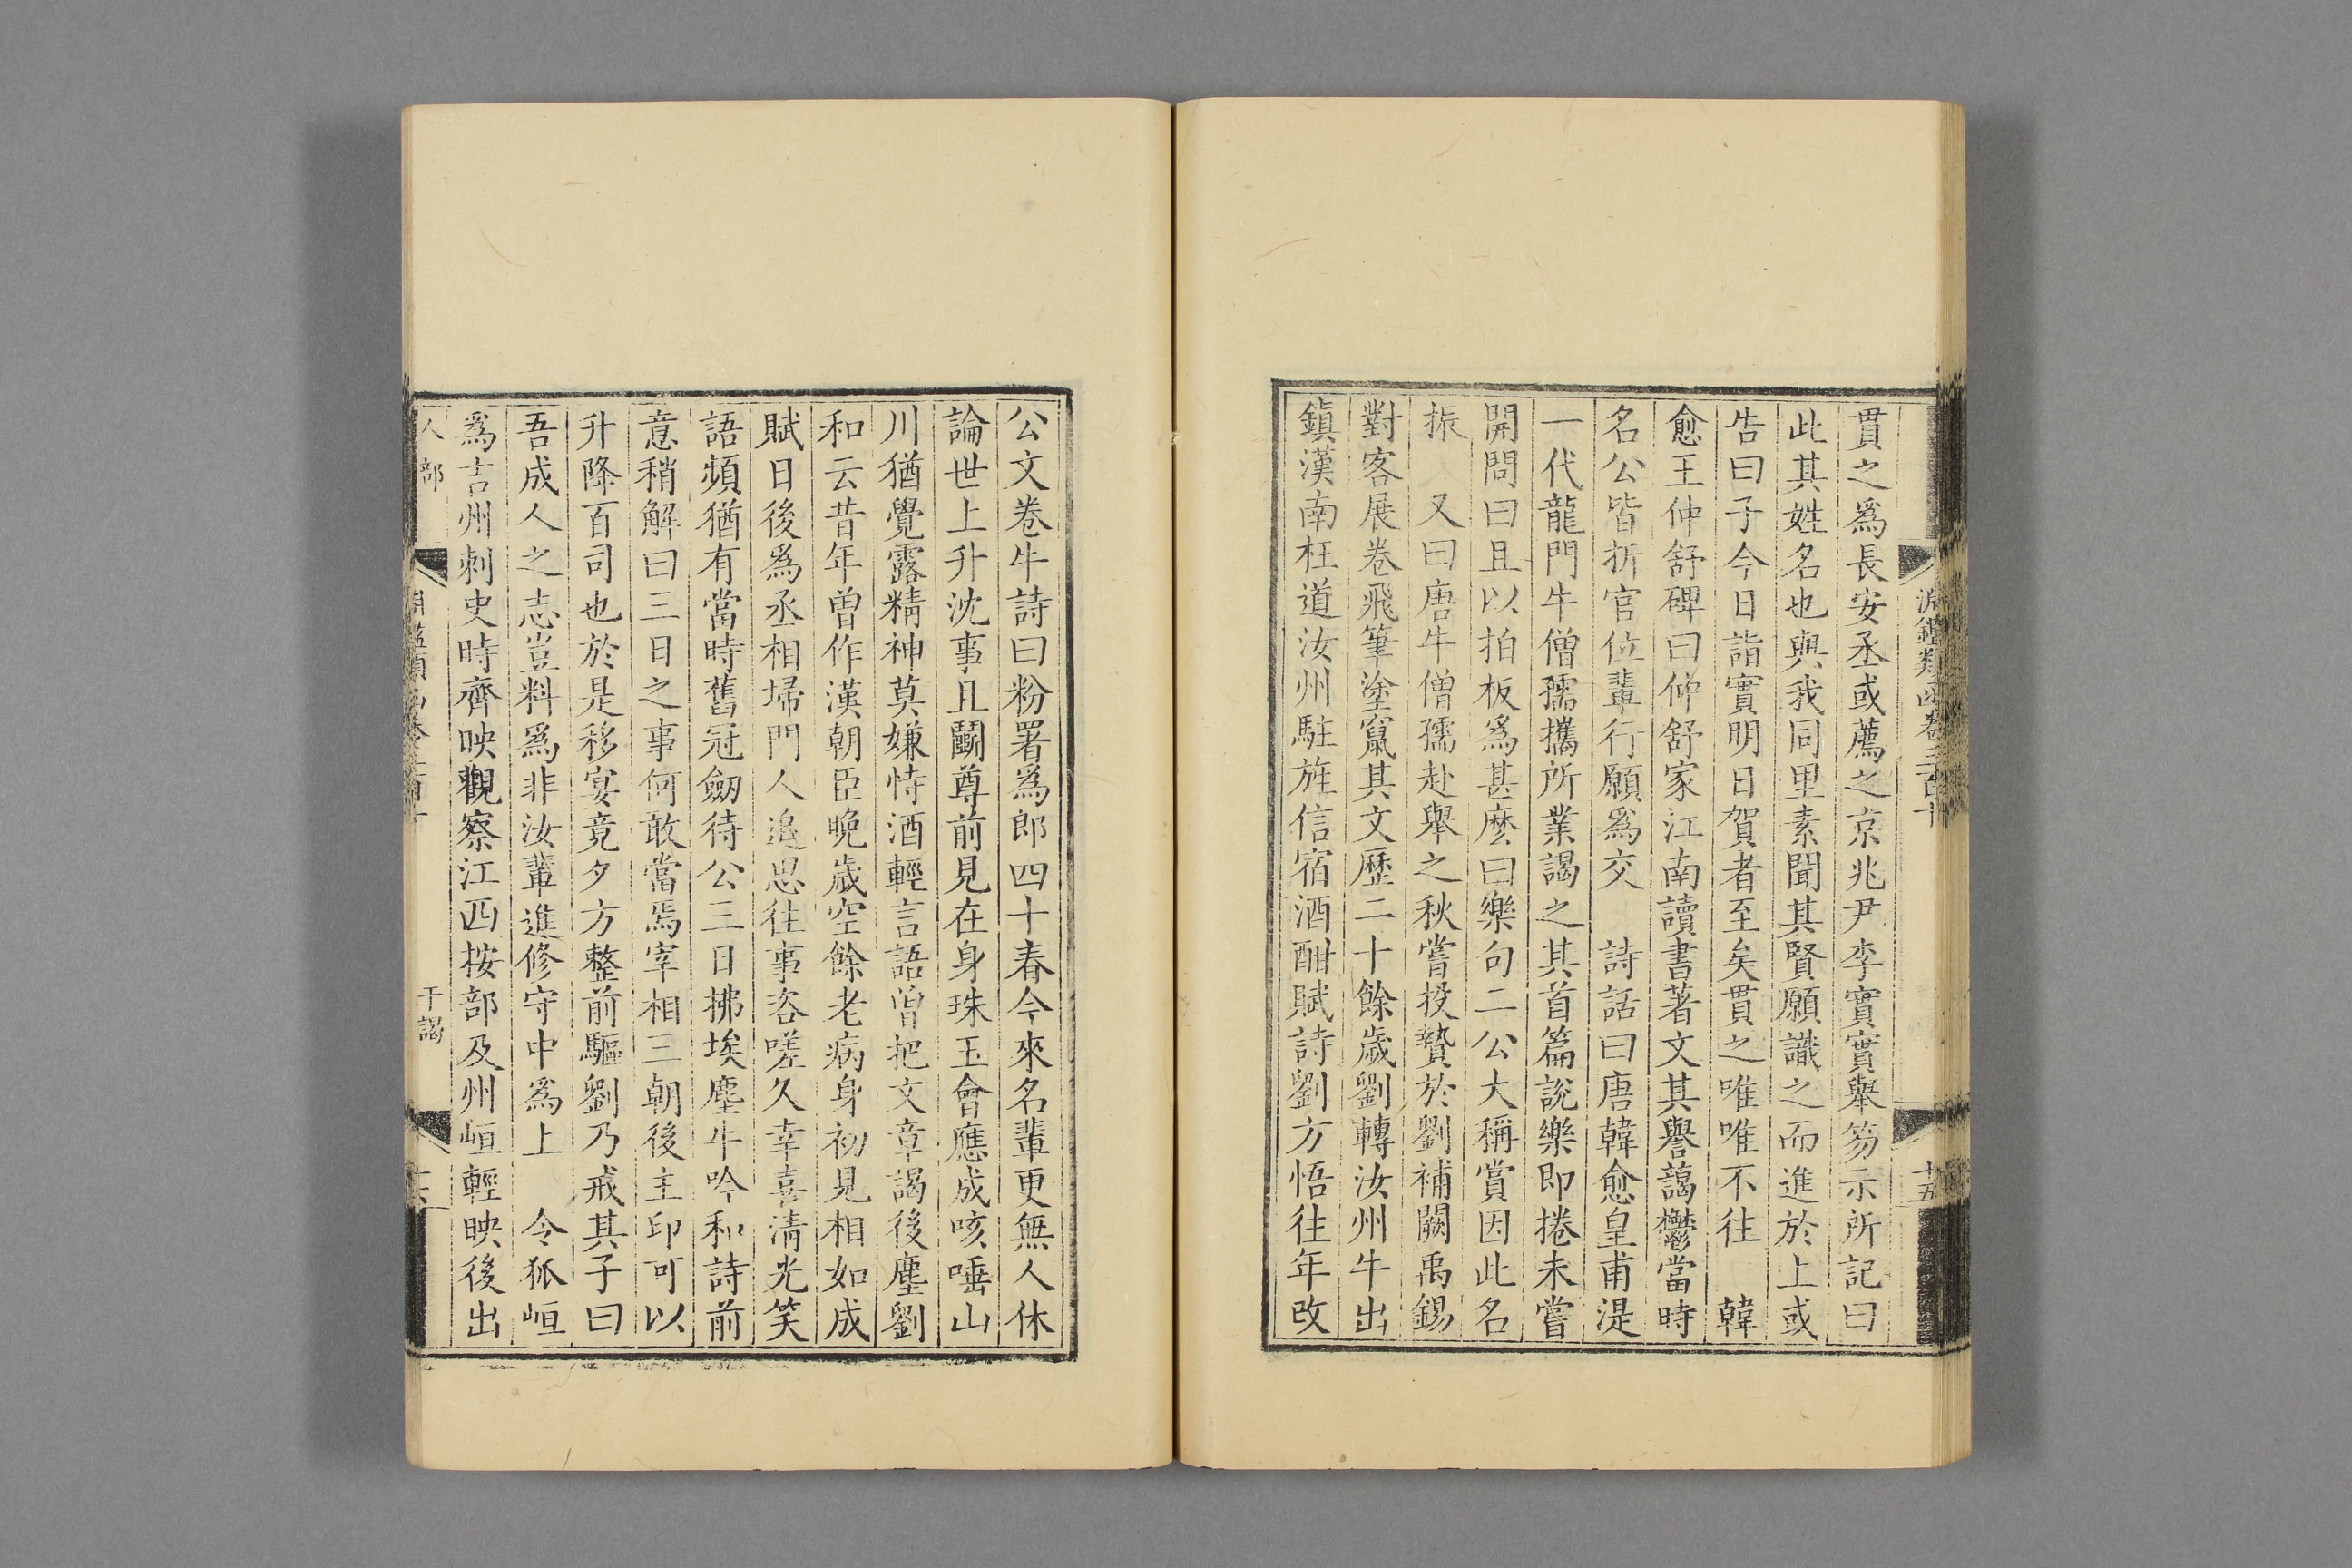 淵鑑類函卷三百十
十五
貫之爲長安丞或薦之京兆尹李實實舉笏示所記曰
此其姓名也與我同里素聞其賢願識之而進於上或
告曰子今日詣實明日賀者至矣貫之唯唯不往　韓
愈王仲舒碑曰仲舒家江南讀書著文其譽藹鬱當時
名公皆折官位輩行願爲交　詩話曰唐韓愈皇甫湜
一代龍門牛僧孺攜所業謁之其首篇說樂即捲未嘗
開問曰且以拍板爲甚麽曰樂句二公大稱賞因此名
振　又曰唐牛僧孺赴舉之秋嘗投贄於劉補闕禹錫
對客展卷飛筆塗竄其文歷二十餘歲劉轉汝州牛出
鎮漢南枉道汝州駐旌信宿酒酣賦詩劉方悟往年改
公文卷牛詩曰粉署爲郎四十春今來名輩更無人休
論世上升沈事且鬬尊前見在身珠玉會應成咳唾山
川猶覺露精神莫嫌恃酒輕言語曽把文章謁後塵劉
和云昔年曽作漢朝臣晚歲空餘老病身初見相如成
賦日後爲丞相埽門人追思往事咨嗟久幸喜淸光笑
語頻猶有當時舊冠劒待公三日拂埃塵牛吟和詩前
意稍解曰三日之事何敢當焉宰相三朝後主印可以
升降百司也於是移宴竟夕方整前驅劉乃戒其子曰
吾成人之志豈料爲非汝輩進修守中爲上　令狐峘
爲吉州刺史時齊映觀察江西按部及州峘輕映後出
人部
干謁
十六